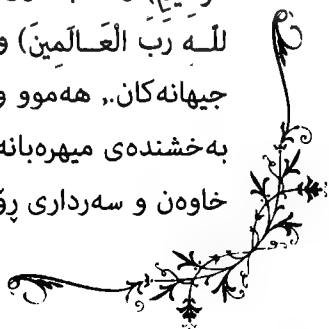 للّـه رَبَ الْعَـالَمِينَ) و
جیهانەکان., هەموو و
بەخشندەی میهرەبانە
خاوەن و سەرداری ڕۆ